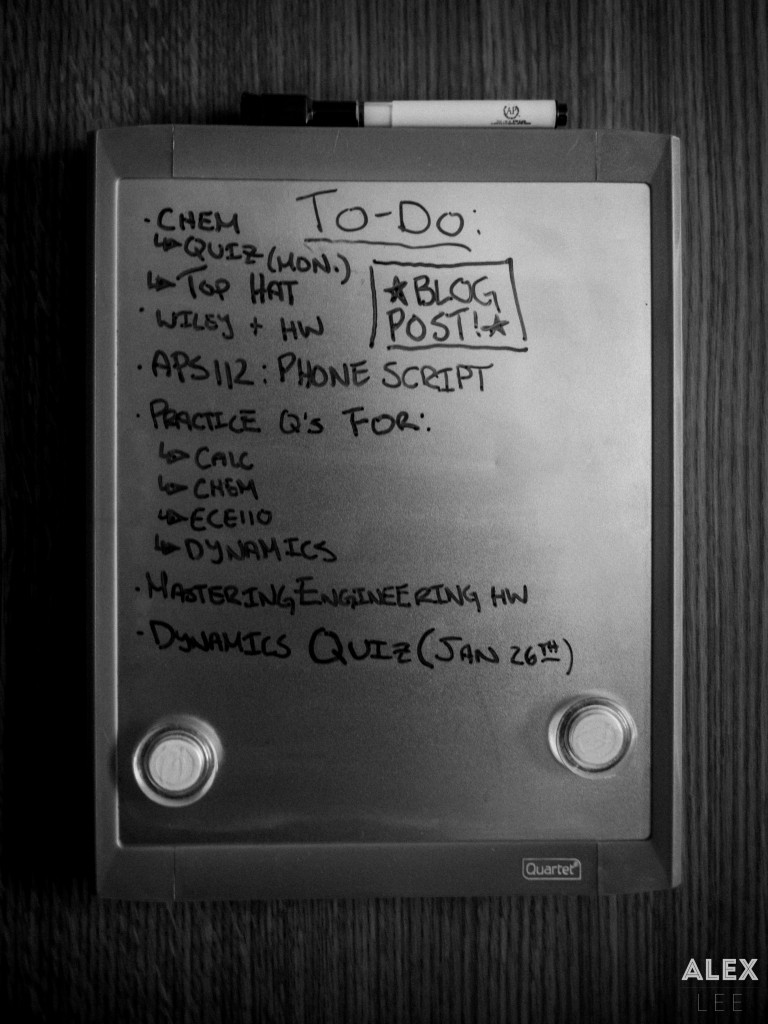 TO-DO:
· CHEM
↳ QUIZ (MON.)
↳ TOP HAT
★BLOG
POST!★
· WILEY + HW
· APS112: PHONE SCRIPT
· PRACTICE Q'S FOR:
↳ CALC
↳ CHEM
↳ ECE110
↳ DYNAMICS
· MASTERINGENGINEERING HW
· DYNAMICS QUIZ (JAN 26TH)
Quartet®
ALEX
LEE